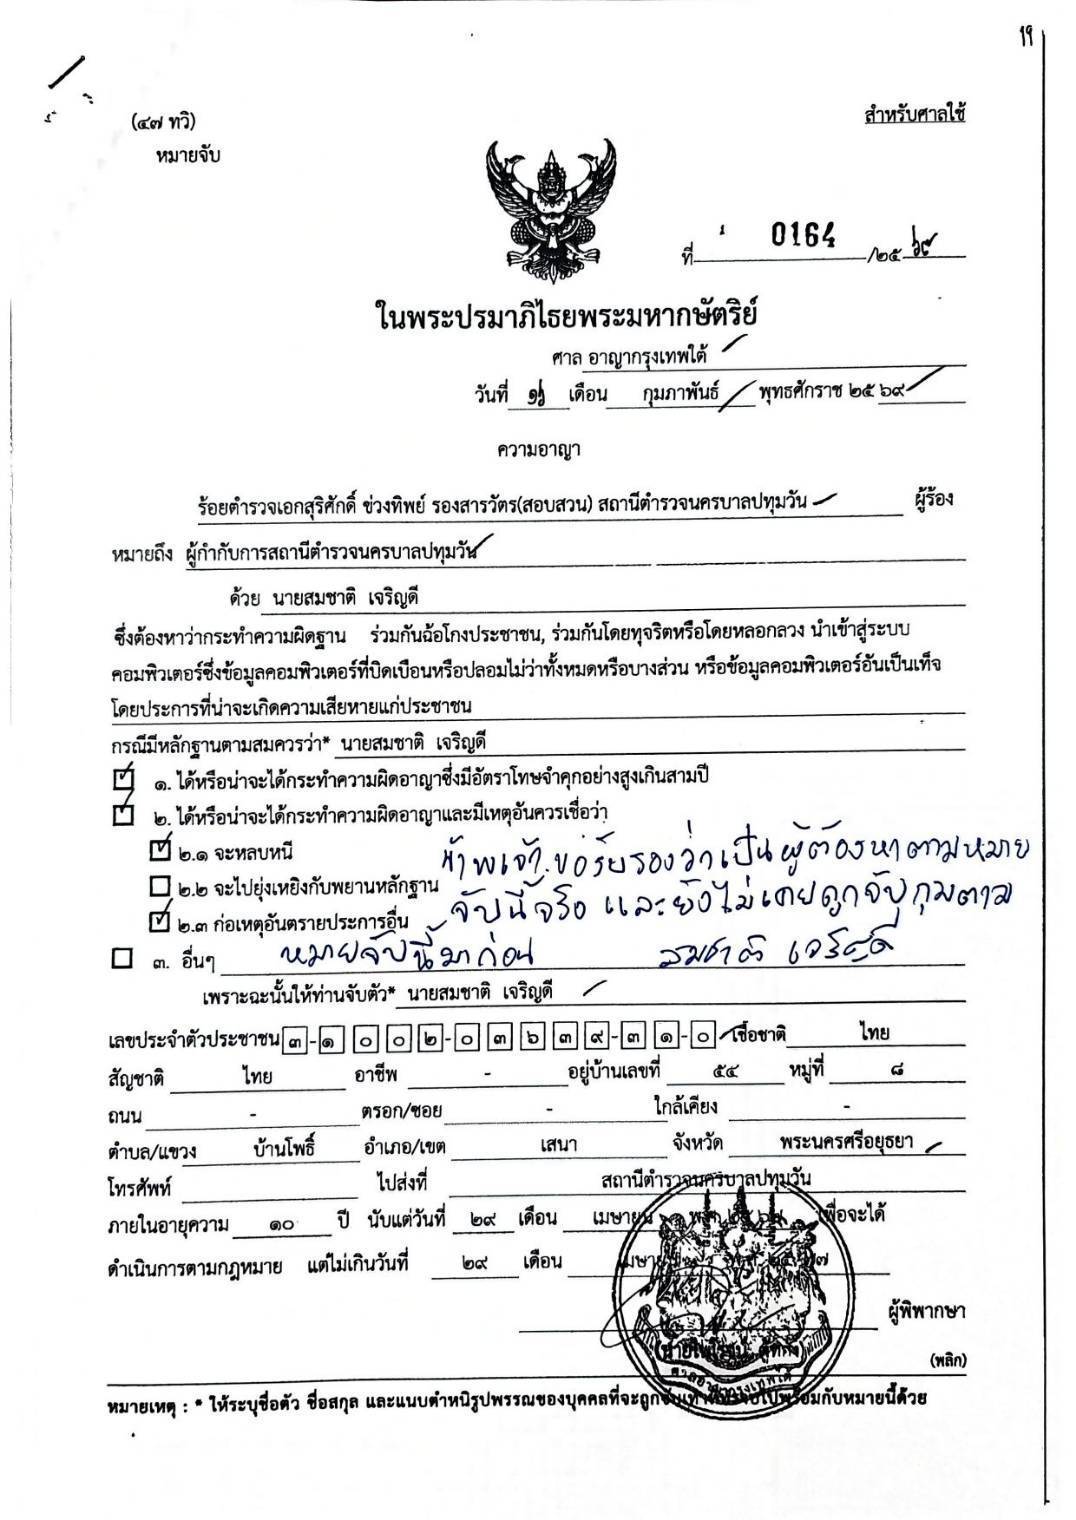 ๑๑
(๔๗ ทวิ)
สำหรับศาลใช้
หมายจับ
ที่ 0164 /๒๕ ๖๙
ในพระปรมาภิไธยพระมหากษัตริย์
ศาล อาญากรุงเทพใต้
วันที่ เดือน กุมภาพันธ์ พุทธศักราช ๒๕ ๖๙
ความอาญา
ร้อยตำรวจเอกสุริศักดิ์ ช่วงทิพย์ รองสารวัตร(สอบสวน) สถานีตำรวจนครบาลปทุมวัน ผู้ร้อง
หมายถึง ผู้กำกับการสถานีตำรวจนครบาลปทุมวัน
ด้วย นายสมชาติ เจริญดี
ซึ่งต้องหาว่ากระทำความผิดฐาน ร่วมกันฉ้อโกงประชาชน, ร่วมกันโดยทุจริตหรือโดยหลอกลวง นำเข้าสู่ระบบ
คอมพิวเตอร์ซึ่งข้อมูลคอมพิวเตอร์ที่บิดเบือนหรือปลอมไม่ว่าทั้งหมดหรือบางส่วน หรือข้อมูลคอมพิวเตอร์อันเป็นเท็จ
โดยประการที่น่าจะเกิดความเสียหายแก่ประชาชน
กรณีมีหลักฐานตามสมควรว่า* นายสมชาติ เจริญดี
๑. ได้หรือน่าจะได้กระทำความผิดอาญาซึ่งมีอัตราโทษจำคุกอย่างสูงเกินสามปี
๒. ได้หรือน่าจะได้กระทำความผิดอาญาและมีเหตุอันควรเชื่อว่า
๒.๑ จะหลบหนี
ข้าพเจ้าขอรับรองว่าเป็นผู้ต้องหาตามหมาย
๒.๒ จะไปยุ่งเหยิงกับพยานหลักฐาน
จับนี้จริง และยังไม่เคยถูกจับกุมตาม
๒.๓ ก่อเหตุอันตรายประการอื่น
หมายจับนี้มาก่อน สมชาติ เจริญดี
๓. อื่นๆ
เพราะฉะนั้นให้ท่านจับตัว* นายสมชาติ เจริญดี
เลขประจำตัวประชาชน ๓-๑๐๐๒-๐๓๖๓๙-๓๑-๐ เชื้อชาติ ไทย
สัญชาติ ไทย อาชีพ - อยู่บ้านเลขที่ ๕๔ หมู่ที่ ๘
ถนน - ตรอก/ซอย - ใกล้เคียง -
ตำบล/แขวง บ้านโพธิ์ อำเภอ/เขต เสนา จังหวัด พระนครศรีอยุธยา
โทรศัพท์ ไปส่งที่ สถานีตำรวจนครบาลปทุมวัน
ภายในอายุความ ๑๐ ปี นับแต่วันที่ ๒๙ เดือน เมษายน พ.ศ. ๒๕๖๗ เพื่อจะได้
ดำเนินการตามกฎหมาย แต่ไม่เกินวันที่ ๒๙ เดือน เมษายน พ.ศ. ๒๕๗๗
ผู้พิพากษา
(พลิก)
ศาลอาญากรุงเทพใต้
หมายเหตุ : * ให้ระบุชื่อตัว ชื่อสกุล และแนบตำหนิรูปพรรณของบุคคลที่จะถูกจับเท่าที่ทราบไปพร้อมกับหมายนี้ด้วย